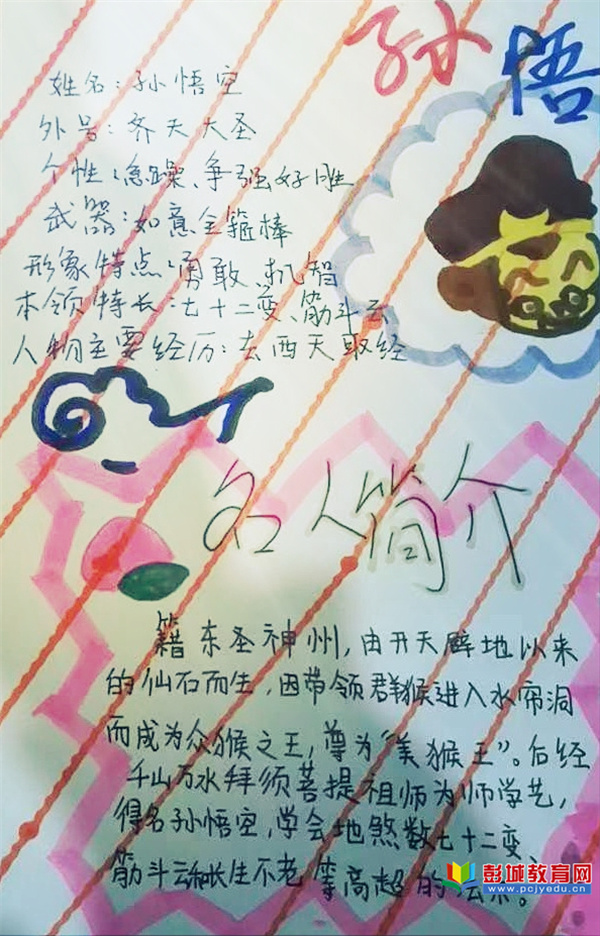 孙悟
姓名:孙悟空
外号:齐天大圣
个性:急躁、争强好胜
武器:如意金箍棒
形象特点:勇敢、机智
本领特长:七十二变、筋斗云
人物主要经历:去西天取经
名人简介
籍东圣神州,由开天辟地以来
的仙石而生,因带领群猴进入水帘洞
而成为众猴之王,尊为“美猴王”。后经
千山万水拜须菩提祖师为师学艺,
得名孙悟空,学会地煞数七十二变、
筋斗云和长生不老等高超的
彭城教育网
www.pcjyedu.cn